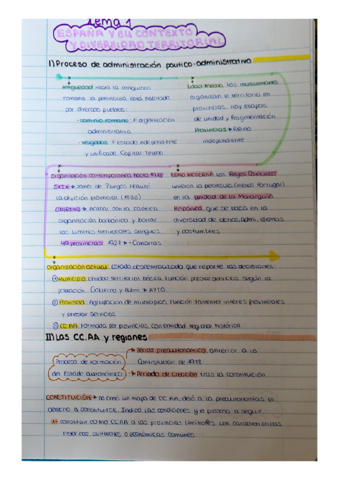 TEMA 1
ESPAÑA Y SU CONTEXTO
Y DIVERSIDAD TERRITORIAL
I) Proceso de administración político-administrativa
Antigüedad Hasta la
romana la península está habitada
por diversos pueblos:
- dominio romano: 1ª organización
administrativa.
- visigodos: Estado independiente
y unificado. Capital: Toledo
Edad Media: los musulmanes
organizan el territorio en
provincias. Hay etapas
de unidad y fragmentación
Provincias → Reino
independiente
Organización contemporánea hasta 1978
de Burgos
la división provincial (1833)
Objetivo →
organización borbónica y borrar
los límites territoriales antiguos
49 provincias 1927 → Canarias
Edad Moderna: los Reyes Católicos
unifican la península (menos Portugal)
en la unidad de la Monarquía
Hispánica, que se basa en la
diversidad de idiomas
y costumbres
Organización actual: Estado descentralizado que reparte las decisiones
① Municipio: básica función prestar servicios según la
población. Gobierno y Adm. → AYTO.
② Provincia: Agrupación de municipios. Función fomentar intereses provinciales
y prestar servicios
③ CC.AA: Formada por provincias con entidad regional histórica.
II) Las CC.AA y regiones
Proceso de formación
del Estado autonómico
→ Período preautonómico: anterior a la
Constitución de 1978
→ Período de creación: tras la constitución.
CONSTITUCIÓN → no creó un mapa de CC.AA, dejó a la preautonomías el
derecho a constituirse. Indicó las condiciones y el proceso a seguir.
constituir como CC.AA a las provincias limítrofes con características
históricas, culturales o económicas comunes.